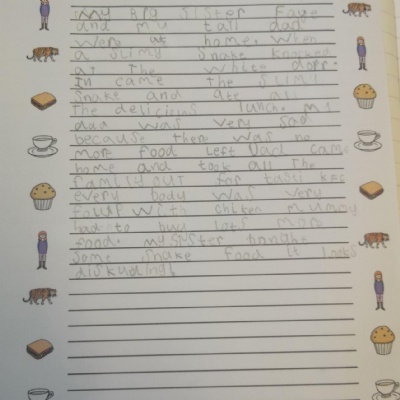 my big sister Faye
and my tall dad
were at home. When
a slimy snake knocked
at the white door.
In came the slimy
snake and ate all
The delicious lunch. my
dad was very sad
because there was no
more food left Dad came
home and took all The
family out for tasti KFC
every body was very
with chiken Mummy
had to buy lots more
food. my sister
some snake food it looks